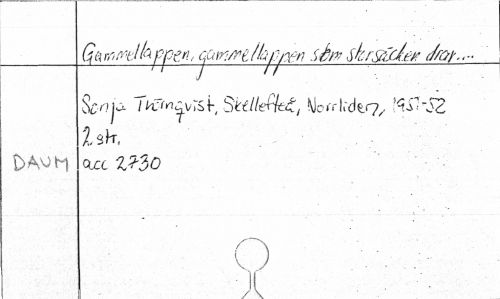 Gammellappen, gammellappen som storsäcken drar....
Sonja Thörnqvist, Skellefteå, Norrliden, 1951-52
2 str.
DAUM acc 2730